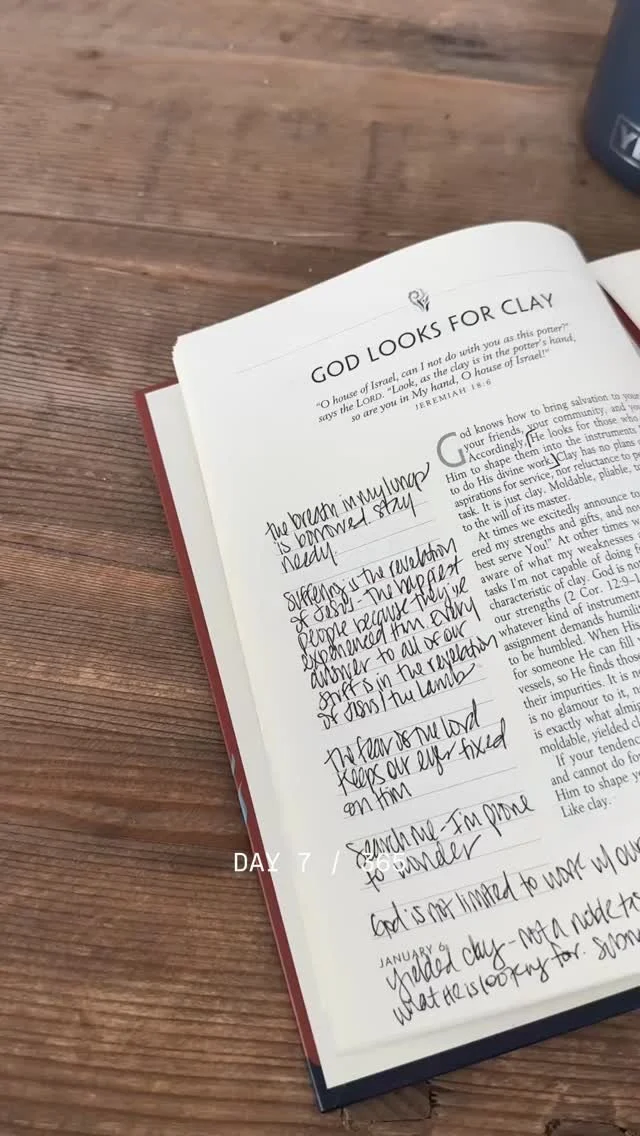 YE
GOD LOOKS FOR CLAY
"O house of Israel, can I not do with you as this potter?"
says the LORD. "Look, as the clay is in the potter's hand,
so are you in My hand, O house of Israel!"
JEREMIAH 18:6
God knows how to bring salvation to your
your friends, your community, and
Accordingly, He looks for those who
Him to shape them into the instrument
to do His divine work. Clay has no plans
aspirations for service, nor reluctance to
task. It is just clay. Moldable, pliable,
to the will of its master.
At times we excitedly announce
ered my strengths and gifts, and
best serve You!" At other times
aware of what my weaknesses
tasks I'm not capable of doing
characteristic of clay. God is not
our strengths (2 Cor. 12:9–
whatever kind of instrument
assignment demands humil
to be humbled. When His
for someone He can fill
vessels, so He finds those
their impurities. It is
no glamour to it,
is exactly what almi
moldable, yielded
If your tendency
and cannot do for
Him to shape y
Like clay.
the breath in my lungs
is borrowed. stay
needy.
suffering is the revelation
of Jesus - the happiest
people because they've
experienced Him. Every
answer to all of our
in the revelation
of Jesus / the Lamb
the fear of the Lord
keeps our eyes fixed
on Him
search me - I'm prone
to wonder
God is not limited to work w/ our
JANUARY 6
yielded clay - not a noble
what He is looking for.
DAY 7 / 365